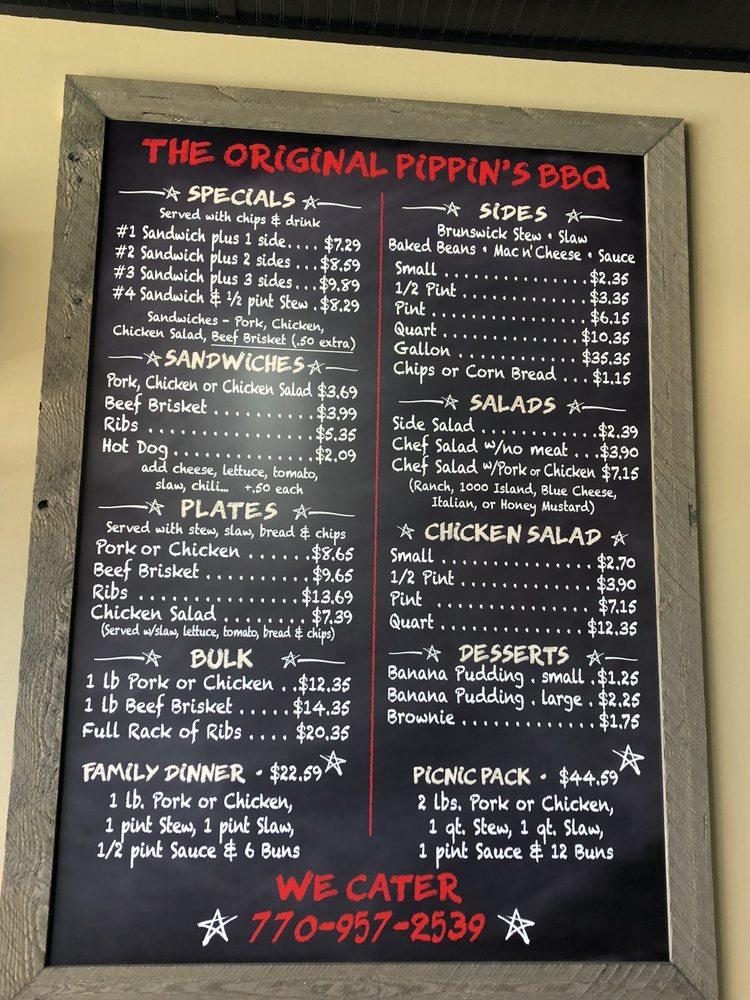 THE ORIGINAL PIPPIN'S BBQ
SPECIALS
Served with chips & drink
#1 Sandwich plus 1 side.... $7.29
#2 Sandwich plus 2 sides ...$8.59
#3 Sandwich plus 3 sides...$9.89
#4 Sandwich & ½ pint Stew .$8.29
Sandwiches - Pork, Chicken,
Chicken Salad, Beef Brisket (.50 extra)
SANDWICHES
Pork, Chicken or Chicken Salad $3.69
Beef Brisket ............$3.99
Ribs ....................$5.35
Hot Dog.................$2.09
add cheese, lettuce, tomato,
slaw, chili... +.50 each
PLATES
Served with stew, slaw, bread & chips
Pork or Chicken .......$8.65
Beef Brisket ..........$9.65
Ribs .................$13.69
Chicken Salad ........$7.39
(Served w/slaw, lettuce, tomato, bread & chips)
BULK
1 lb Pork or Chicken ..$12.35
1 lb Beef Brisket......$14.35
Full Rack of Ribs .... $20.35
FAMILY DINNER • $22.59
1 lb. Pork or Chicken,
1 pint Stew, 1 pint Slaw,
1/2 pint Sauce & 6 Buns
SIDES
Brunswick Stew • Slaw
Baked Beans • Mac n' Cheese • Sauce
Small .................$2.35
1/2 Pint ...............$3.35
Pint ...................$6.15
Quart .................$10.35
Gallon ................$35.35
Chips or Corn Bread ...$1.15
SALADS
Side Salad ..............$2.39
Chef Salad w/no meat ...$3.90
Chef Salad w/Pork or Chicken $7.15
(Ranch, 1000 Island, Blue Cheese,
Italian, or Honey Mustard)
CHICKEN SALAD
Small .................$2.70
1/2 Pint ...............$3.90
Pint ..................$7.15
Quart .................$12.35
DESSERTS
Banana Pudding . small .$1.25
Banana Pudding . large .$2.25
Brownie ...............$1.75
PICNIC PACK • $44.59
2 lbs. Pork or Chicken,
1 qt. Stew, 1 qt. Slaw,
1 pint Sauce & 12 Buns
WE CATER
770-957-2539